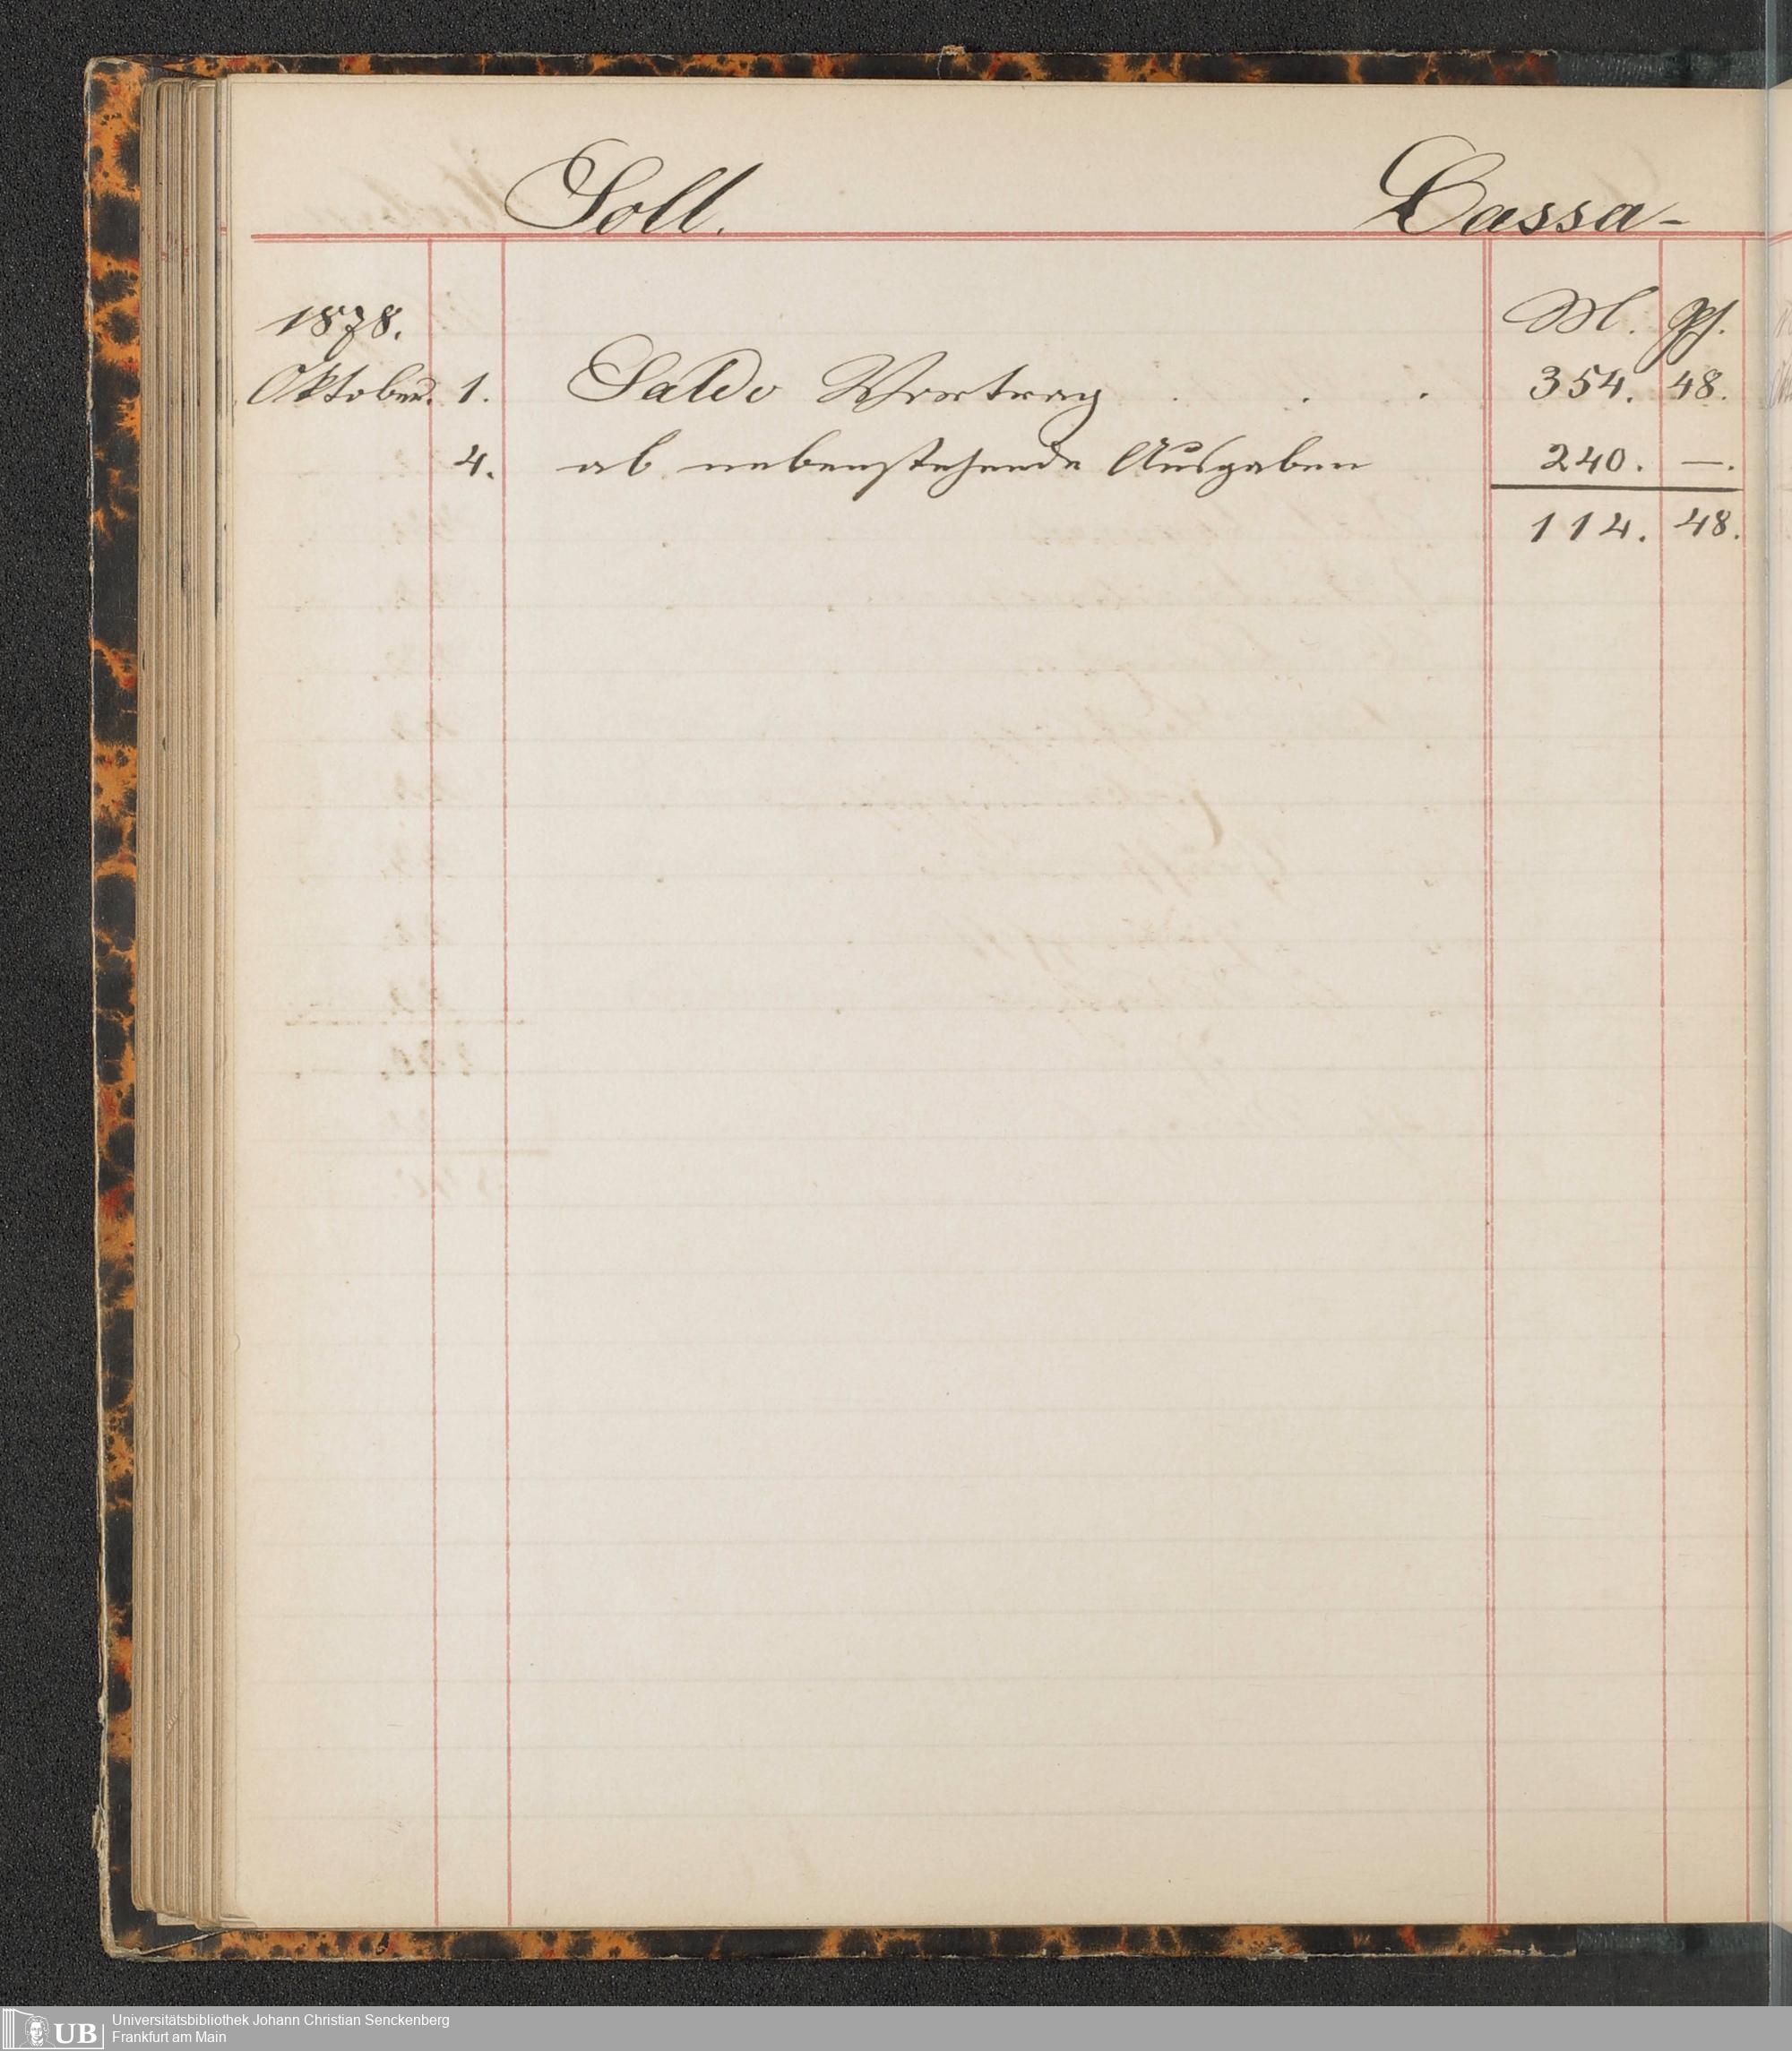 Soll. Cassa-
1878. M. Pf.
Oktober. 1. Saldo Vortrag . . . 354. 48.
4. ab nebenstehende Ausgaben 240. —.
114. 48.
UB Universitätsbibliothek Johann Christian Senckenberg
Frankfurt am Main